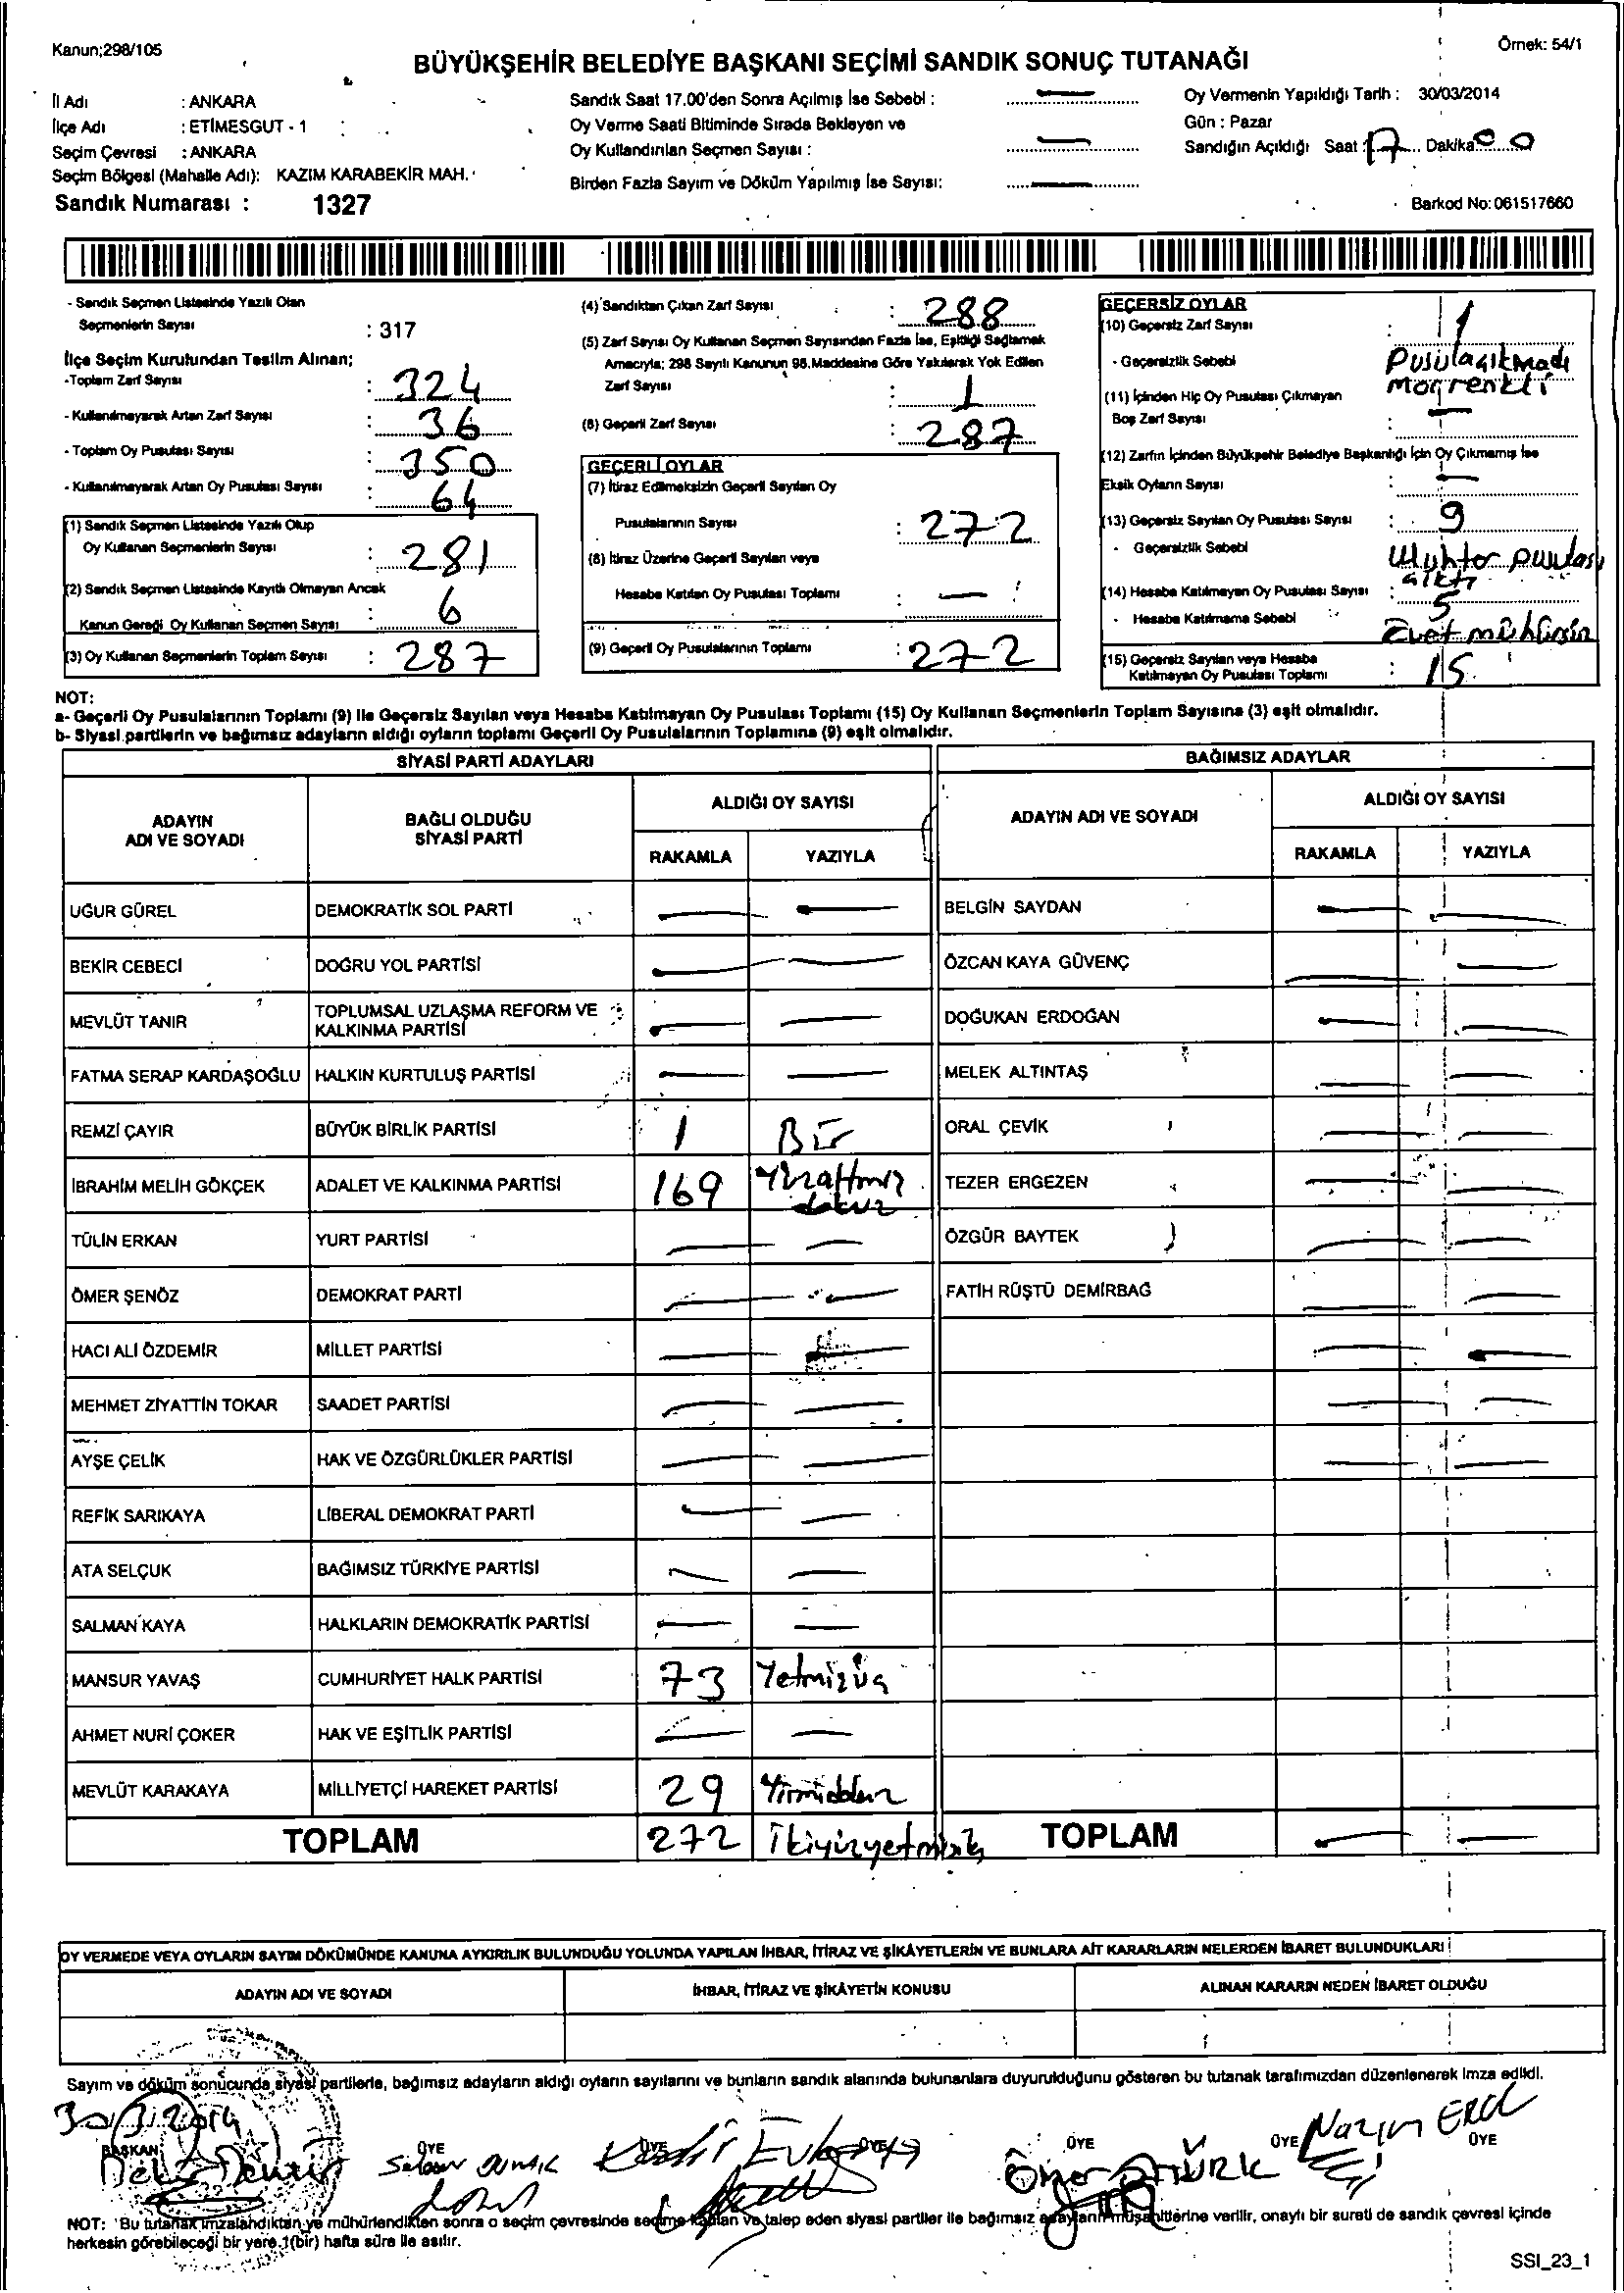 Kanun;298/105
Örnek: 54/1
BÜYÜKŞEHİR BELEDİYE BAŞKANI SEÇİMİ SANDIK SONUÇ TUTANAĞI
İl Adı : ANKARA
İlçe Adı : ETİMESGUT - 1
Seçim Çevresi : ANKARA
Seçim Bölgesi (Mahalle Adı): KAZIM KARABEKİR MAH.
Sandık Numarası : 1327
Sandık Saat 17.00'den Sonra Açılmış İse Sebebi : —
Oy Verme Saati Bitiminde Sırada Bekleyen ve
Oy Kullandırılan Seçmen Sayısı : —
Birden Fazla Sayım ve Döküm Yapılmış İse Sayısı: —
Oy Vermenin Yapıldığı Tarih : 30/03/2014
Gün : Pazar
Sandığın Açıldığı Saat : 17 Dakika 00
Barkod No: 061517660
- Sandık Seçmen Listesinde Yazılı Olan
Seçmenlerin Sayısı : 317
İlçe Seçim Kurulundan Teslim Alınan;
-Toplam Zarf Sayısı : 324
- Kullanılmayarak Artan Zarf Sayısı : 36
- Toplam Oy Pusulası Sayısı : 350
- Kullanılmayarak Artan Oy Pusulası Sayısı : 64
(1) Sandık Seçmen Listesinde Yazılı Olup
Oy Kullanan Seçmenlerin Sayısı : 281
(2) Sandık Seçmen Listesinde Kayıtlı Olmayan Ancak
Kanun Gereği Oy Kullanan Seçmen Sayısı : 6
(3) Oy Kullanan Seçmenlerin Toplam Sayısı : 287
(4) Sandıktan Çıkan Zarf Sayısı : 288
(5) Zarf Sayısı Oy Kullanan Seçmen Sayısından Fazla İse, Eşitliği Sağlamak
Amacıyla; 298 Sayılı Kanunun 98.Maddesine Göre Yakılarak Yok Edilen
Zarf Sayısı : 1
(6) Geçerli Zarf Sayısı : 287
GEÇERLİ OYLAR
(7) İtiraz Edilmeksizin Geçerli Sayılan Oy
Pusulalarının Sayısı : 272
(8) İtiraz Üzerine Geçerli Sayılan veya
Hesaba Katılan Oy Pusulası Toplamı : —
(9) Geçerli Oy Pusulalarının Toplamı : 272
GEÇERSİZ OYLAR
(10) Geçersiz Zarf Sayısı : 1
- Geçersizlik Sebebi Pusula çıkmadı
mor renkli
(11) İçinden Hiç Oy Pusulası Çıkmayan
Boş Zarf Sayısı : —
(12) Zarfın İçinden Büyükşehir Belediye Başkanlığı İçin Oy Çıkmamış İse
Eksik Oyların Sayısı : —
(13) Geçersiz Sayılan Oy Pusulası Sayısı : 9
- Geçersizlik Sebebi Muhtar pusulası
çıktı
(14) Hesaba Katılmayan Oy Pusulası Sayısı : 5
- Hesaba Katılmama Sebebi : Evet mühürsüz
(15) Geçersiz Sayılan veya Hesaba
Katılmayan Oy Pusulası Toplamı : 15
NOT:
a- Geçerli Oy Pusulalarının Toplamı (9) ile Geçersiz Sayılan veya Hesaba Katılmayan Oy Pusulası Toplamı (15) Oy Kullanan Seçmenlerin Toplam Sayısına (3) eşit olmalıdır.
b- Siyasi partilerin ve bağımsız adayların aldığı oyların toplamı Geçerli Oy Pusulalarının Toplamına (9) eşit olmalıdır.
SİYASİ PARTİ ADAYLARI
BAĞIMSIZ ADAYLAR
ADAYIN
ADI VE SOYADI
BAĞLI OLDUĞU
SİYASİ PARTİ
ALDIĞI OY SAYISI
RAKAMLA YAZIYLA
ADAYIN ADI VE SOYADI
ALDIĞI OY SAYISI
RAKAMLA YAZIYLA
UĞUR GÜREL DEMOKRATİK SOL PARTİ — — BELGİN SAYDAN — —
BEKİR CEBECİ DOĞRU YOL PARTİSİ — — ÖZCAN KAYA GÜVENÇ — —
MEVLÜT TANIR TOPLUMSAL UZLAŞMA REFORM VE
KALKINMA PARTİSİ — — DOĞUKAN ERDOĞAN — —
FATMA SERAP KARDAŞOĞLU HALKIN KURTULUŞ PARTİSİ — — MELEK ALTINTAŞ — —
REMZİ ÇAYIR BÜYÜK BİRLİK PARTİSİ 1 Bir ORAL ÇEVİK — —
İBRAHİM MELİH GÖKÇEK ADALET VE KALKINMA PARTİSİ 169 Yüzaltmış dokuz TEZER ERGEZEN — —
TÜLİN ERKAN YURT PARTİSİ — — ÖZGÜR BAYTEK — —
ÖMER ŞENÖZ DEMOKRAT PARTİ — — FATİH RÜŞTÜ DEMİRBAĞ — —
HACI ALİ ÖZDEMİR MİLLET PARTİSİ — — — —
MEHMET ZİYATTİN TOKAR SAADET PARTİSİ — — — —
AYŞE ÇELİK HAK VE ÖZGÜRLÜKLER PARTİSİ — — — —
REFİK SARIKAYA LİBERAL DEMOKRAT PARTİ — —
ATA SELÇUK BAĞIMSIZ TÜRKİYE PARTİSİ — —
SALMAN KAYA HALKLARIN DEMOKRATİK PARTİSİ — —
MANSUR YAVAŞ CUMHURİYET HALK PARTİSİ 73 Yetmişüç
AHMET NURİ ÇOKER HAK VE EŞİTLİK PARTİSİ — —
MEVLÜT KARAKAYA MİLLİYETÇİ HAREKET PARTİSİ 29 Yirmidokuz
TOPLAM 272 İkiyüzyetmişiki TOPLAM — —
OY VERMEDE VEYA OYLARIN SAYIM DÖKÜMÜNDE KANUNA AYKIRILIK BULUNDUĞU YOLUNDA YAPILAN İHBAR, İTİRAZ VE ŞİKÂYETLERİN VE BUNLARA AİT KARARLARIN NELERDEN İBARET BULUNDUKLARI
ADAYIN ADI VE SOYADI İHBAR, İTİRAZ VE ŞİKÂYETİN KONUSU ALINAN KARARIN NEDEN İBARET OLDUĞU
Sayım ve döküm sonucunda siyasi partilerle, bağımsız adayların aldığı oyların sayılarını ve bunların sandık alanında bulunanlara duyurulduğunu gösteren bu tutanak tarafımızdan düzenlenerek imza edildi.
30/3/2014
BAŞKAN ÜYE ÜYE ÜYE ÜYE ÜYE ÜYE
Ömer
NOT: Bu tutanak imzalandıktan ve mühürlendikten sonra o seçim çevresinde seçime katılan ve talep eden siyasi partiler ile bağımsız adayların müşahitlerine verilir, onaylı bir sureti de sandık çevresi içinde
herkesin görebileceği bir yere 1(bir) hafta süre ile asılır.
SSI_23_1